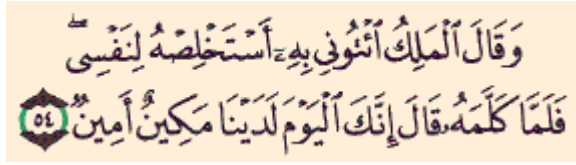 وَقَالَ ٱلْمَلِكُ ٱئْتُونِى بِهِۦٓ أَسْتَخْلِصْهُ لِنَفْسِى ۖ
فَلَمَّا كَلَّمَهُۥ قَالَ إِنَّكَ ٱلْيَوْمَ لَدَيْنَا مَكِينٌ أَمِينٌ ٥٤